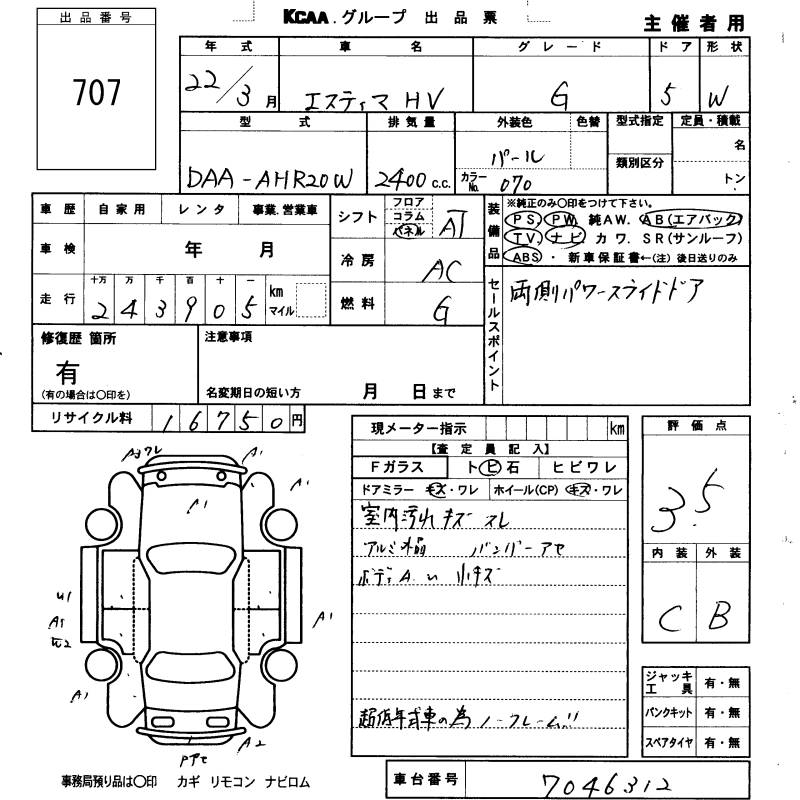 出品番号
707
KCAA.グループ 出品票
主催者用
年式 車名 グレード ドア 形状
22/3月 エスティマ HV G 5 W
型式 排気量 外装色 色替 型式指定 定員・積載
DAA-AHR20W 2400 c.c. パール 類別区分 名
カラーNo. 070 トン
車歴 自家用 レンタ 事業.営業車
シフト フロア コラム パネル AT
装備品
※純正のみ〇印をつけて下さい。
PS PW 純AW. AB(エアバック)
TV. ナビ カワ. SR(サンルーフ)
ABS ・ 新車保証書←(注) 後日送りのみ
車検 年 月
冷房 AC
走行 十万 万 千 百 十 一
243905 km マイル
燃料 G
セールスポイント
両側パワースライドドア
修復歴 箇所
有
(有の場合は〇印を)
注意事項
名変期日の短い方 月 日まで
リサイクル料 16750円
現メーター指示 km
【査定員記入】
Fガラス ト ビ 石 ヒビワレ
ドアミラー キズ・ワレ ホイール(CP) キズ・ワレ
室内汚れ キズ スレ
バンパー
超低年式車の為 ノークレーム!!
評価点
3.5
内装 外装
C B
ジャッキ工具 有・無
パンクキット 有・無
スペアタイヤ 有・無
A1
A1
A1
A1
A1
A1
A2
U1
事務局預り品は〇印 カギ リモコン ナビロム
車台番号 7046312